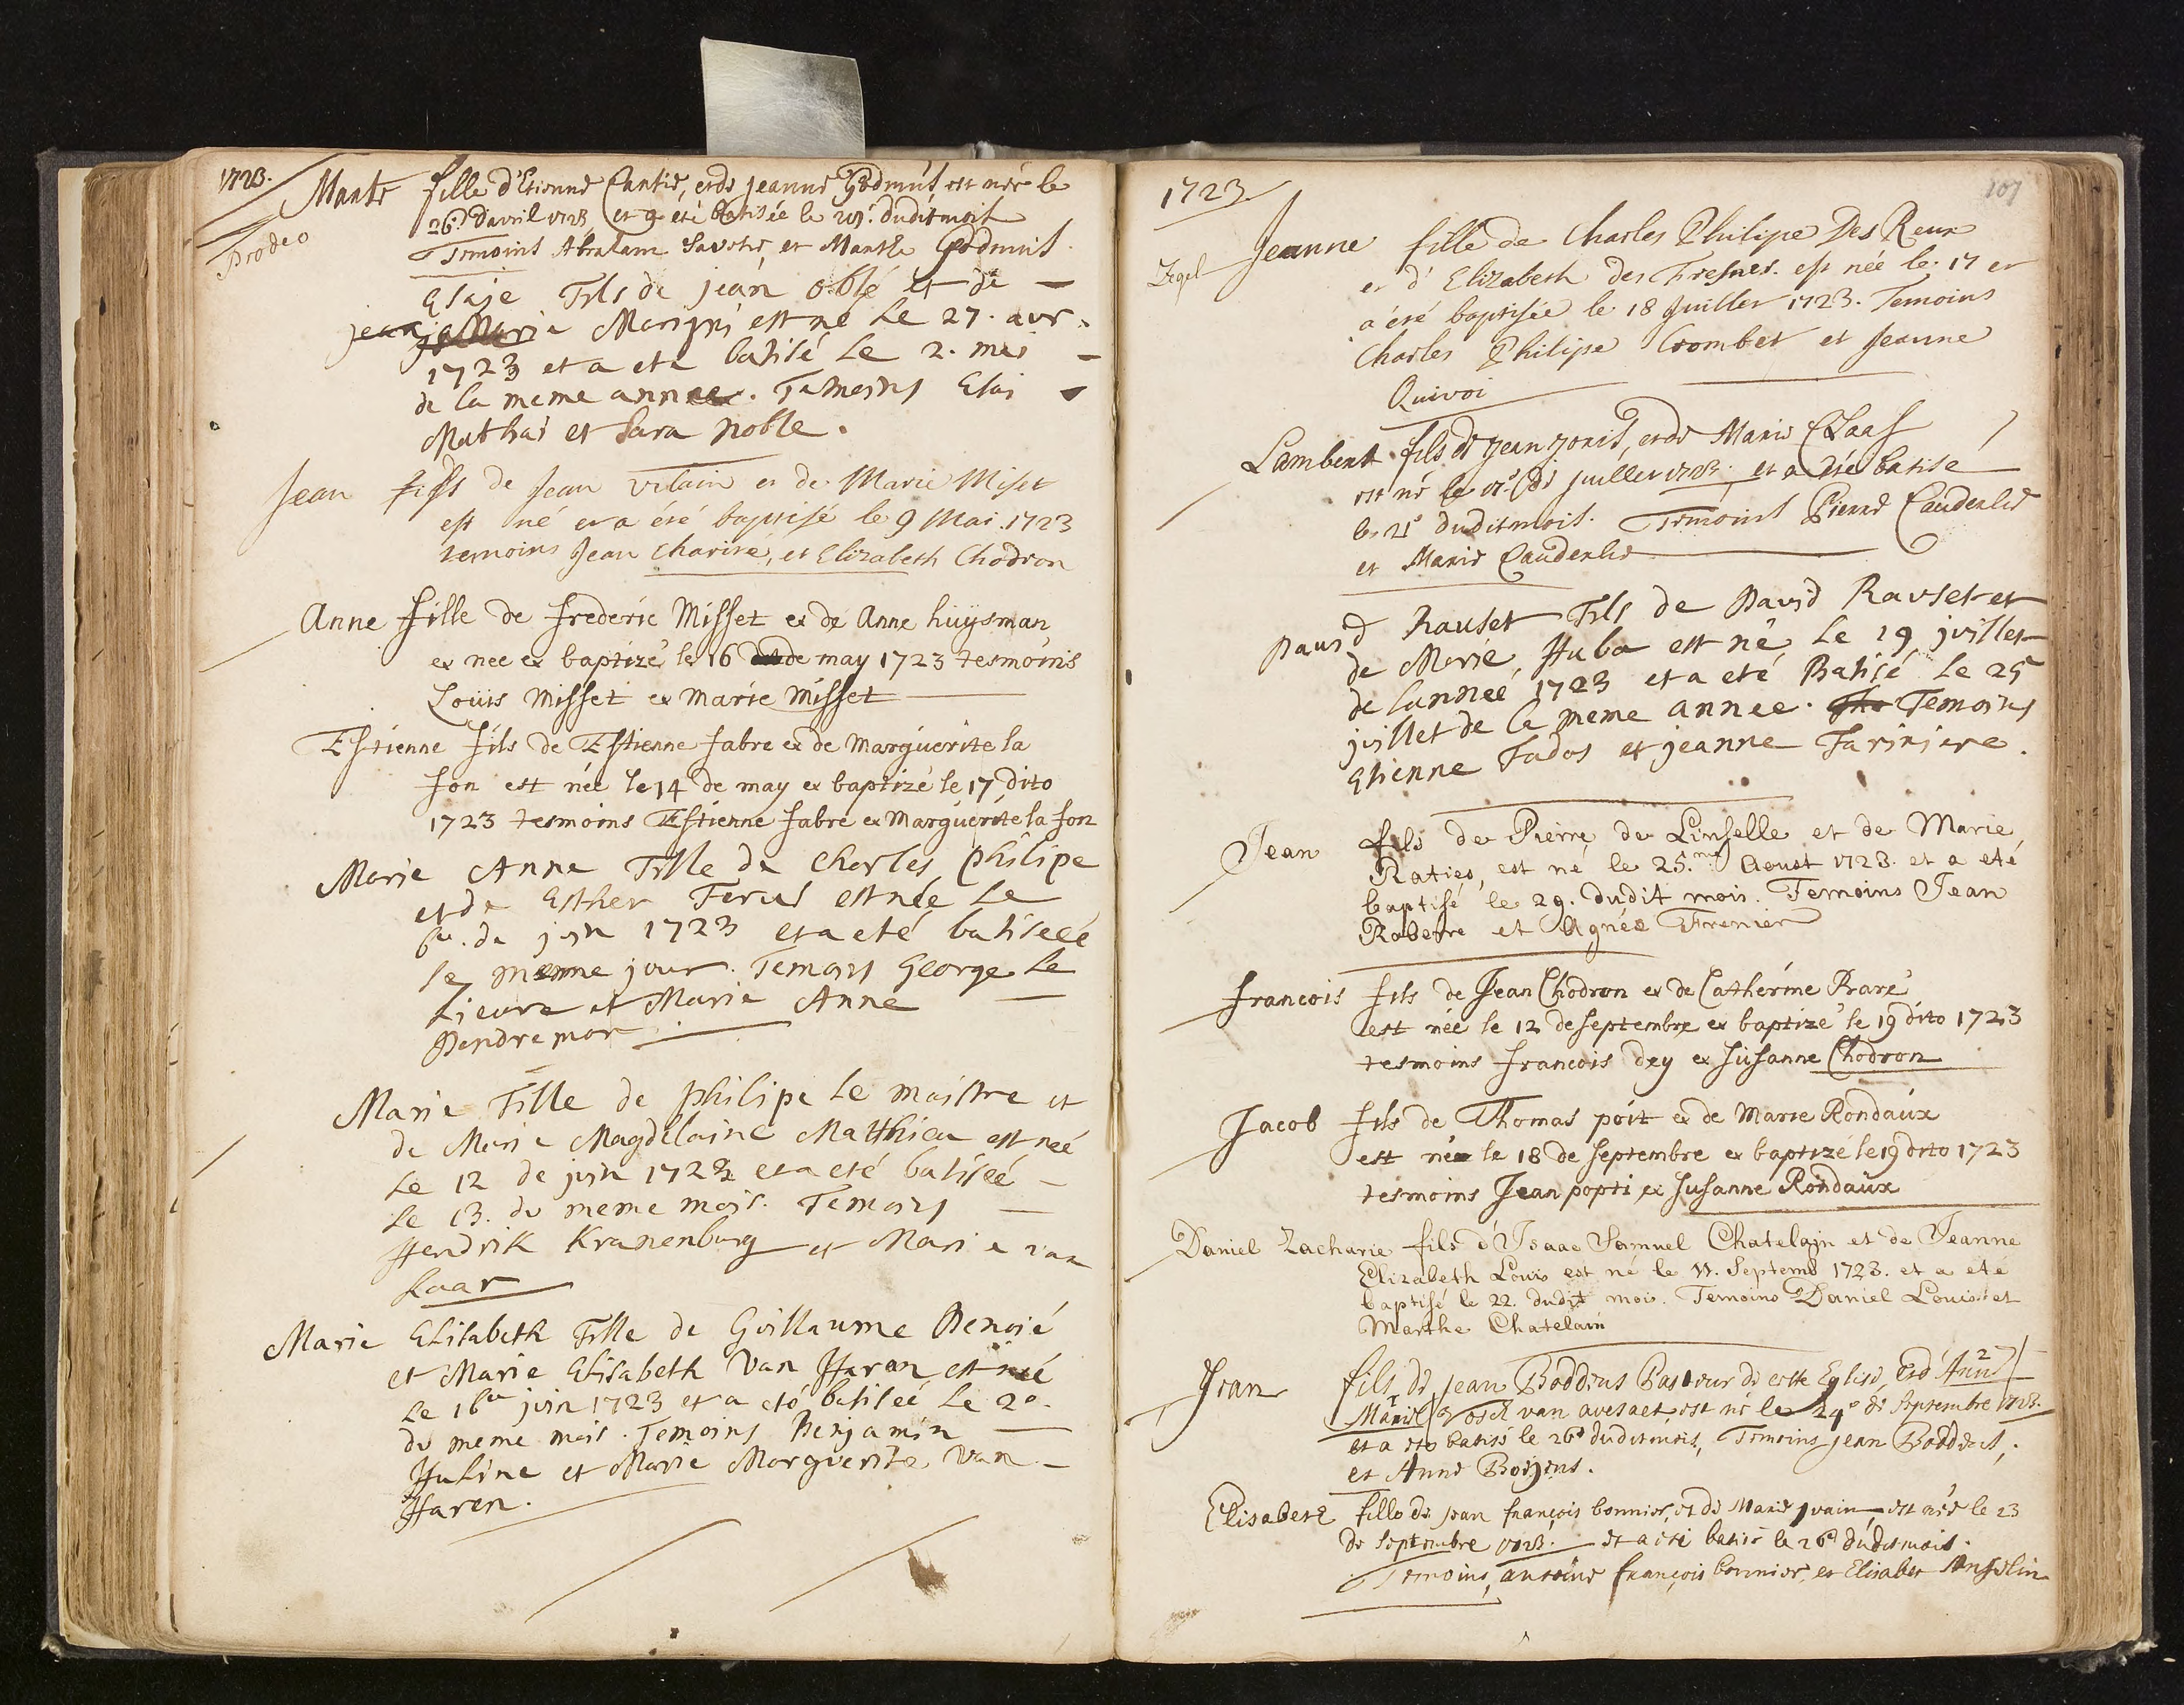 1723.
Marthe fille d'Etienne Cantié, et de jeanne Godmus est née le
26e d'avril 1723, et a été batisée le dudit mois
Prodeo
Temoins Abraham et Marthe Godmus.
Esaje Fils de jean oblé et de
jean Marie Marigni est né Le 27. avr.
1723 et a ete batisé Le 2. mei
de la meme annee. Temoins Esai
Mathai et Sara noble.
Jean fils de Jean vilain et de Marie Miset
est né et a été baptisé le 9 Mai. 1723
temoins Jean Charité, et Elizabeth Chodron
Anne fille de frederic Misset et de Anne huysman
et nee et baptizé le 16 de may 1723 tesmoins
Louis Misset et Marie Misset
Estienne fils de Estienne fabre et de Marguerite la
fon est née le 14 de may et baptizé le 17 dito
1723 tesmoins Estienne fabre et Marguerite la fon
Marie Anne Fille de Charles philipe
et de Esther Ferus est née Le
6e. de juin 1723 et a eté batiseé
le meme jour. Temoins George Le
Lievre et Marie Anne
Dendremor
Marie Fille de philipe Le maistre et
de Marie Magdelaine Matthieu est neé
Le 12 de juin 1723 et a eté batiseé
Le 13. du meme mois. Temoins
Hendrik Kranenburg et Marie van
Laar
Marie Elisabeth Fille de Guillaume Benoié
et Marie Elisabeth Van Haren est neé
Le 16 juin 1723 et a eté batiseé Le 20.
du meme mois. Temoins Benjamin
Huline et Marie Marguerite Van
Haren.
1723
107
Jeanne fille de Charles Philipe Des Reux
Zegel
et d'Elizabeth des Fresnes. est née le 17 et
a été baptisée le 18 Juillet 1723. Temoins
Charles Philipe Crombet et Jeanne
Quivoi
Lambert fils de Jean jonis, et de Marie Claas
est né le de juillet 1723. et a été batisé
le 21e dudit mois. Temoins Pierre Cauderlié
et Marie Cauderlié
David Rauset Fils de David Rauset et
de Marie Huba est né Le 19 juillet
de lanneé 1723 et a eté Batisé Le 25
juillet de la meme annee. Temoins
Etienne Fados et jeanne Fariniere.
Jean fils de Pierre de Linselle et de Marie
Raties, est né le 25.me Aoust 1723. et a eté
baptisé le 29. dudit mois. Temoins Jean
Roberre et Agnés Frenier
francois fils de Jean Chodron et de Catherine Praré
est née le 12 de septembre et baptizé le 19 dito 1723
tesmoins francois dey et susanne Chodron
Jacob fils de Thomas poit et de Marie Rondaux
est née le 18 de septembre et baptizé le 19 dito 1723
tesmoins Jean popti et susanne Rondaux
Daniel Zacharie fils d'Isaac Samuel Chatelain et de Jeanne
Elizabeth Louis est né le 11. Septemb 1723. et a été
baptisé le 22. dudit mois. Temoins Daniel Louis et
Marthe Chatelain
Jean fils de jean Boddens Pasteur de cette Eglise, et d'Anne
Marie Vosch van avesaet, est né le 24e de Septembre 1723.
et a eté batisé le 26e dudit mois, Temoins jean Boddens,
et Anne Boijens.
Elisabeth fille de jean françois bonnier, et de Marie jvain, est née le 23
de Septembre 1723. et a été batisé le 26e dudit mois.
Temoins, antoine françois bonnier, et Elisabet Anselin